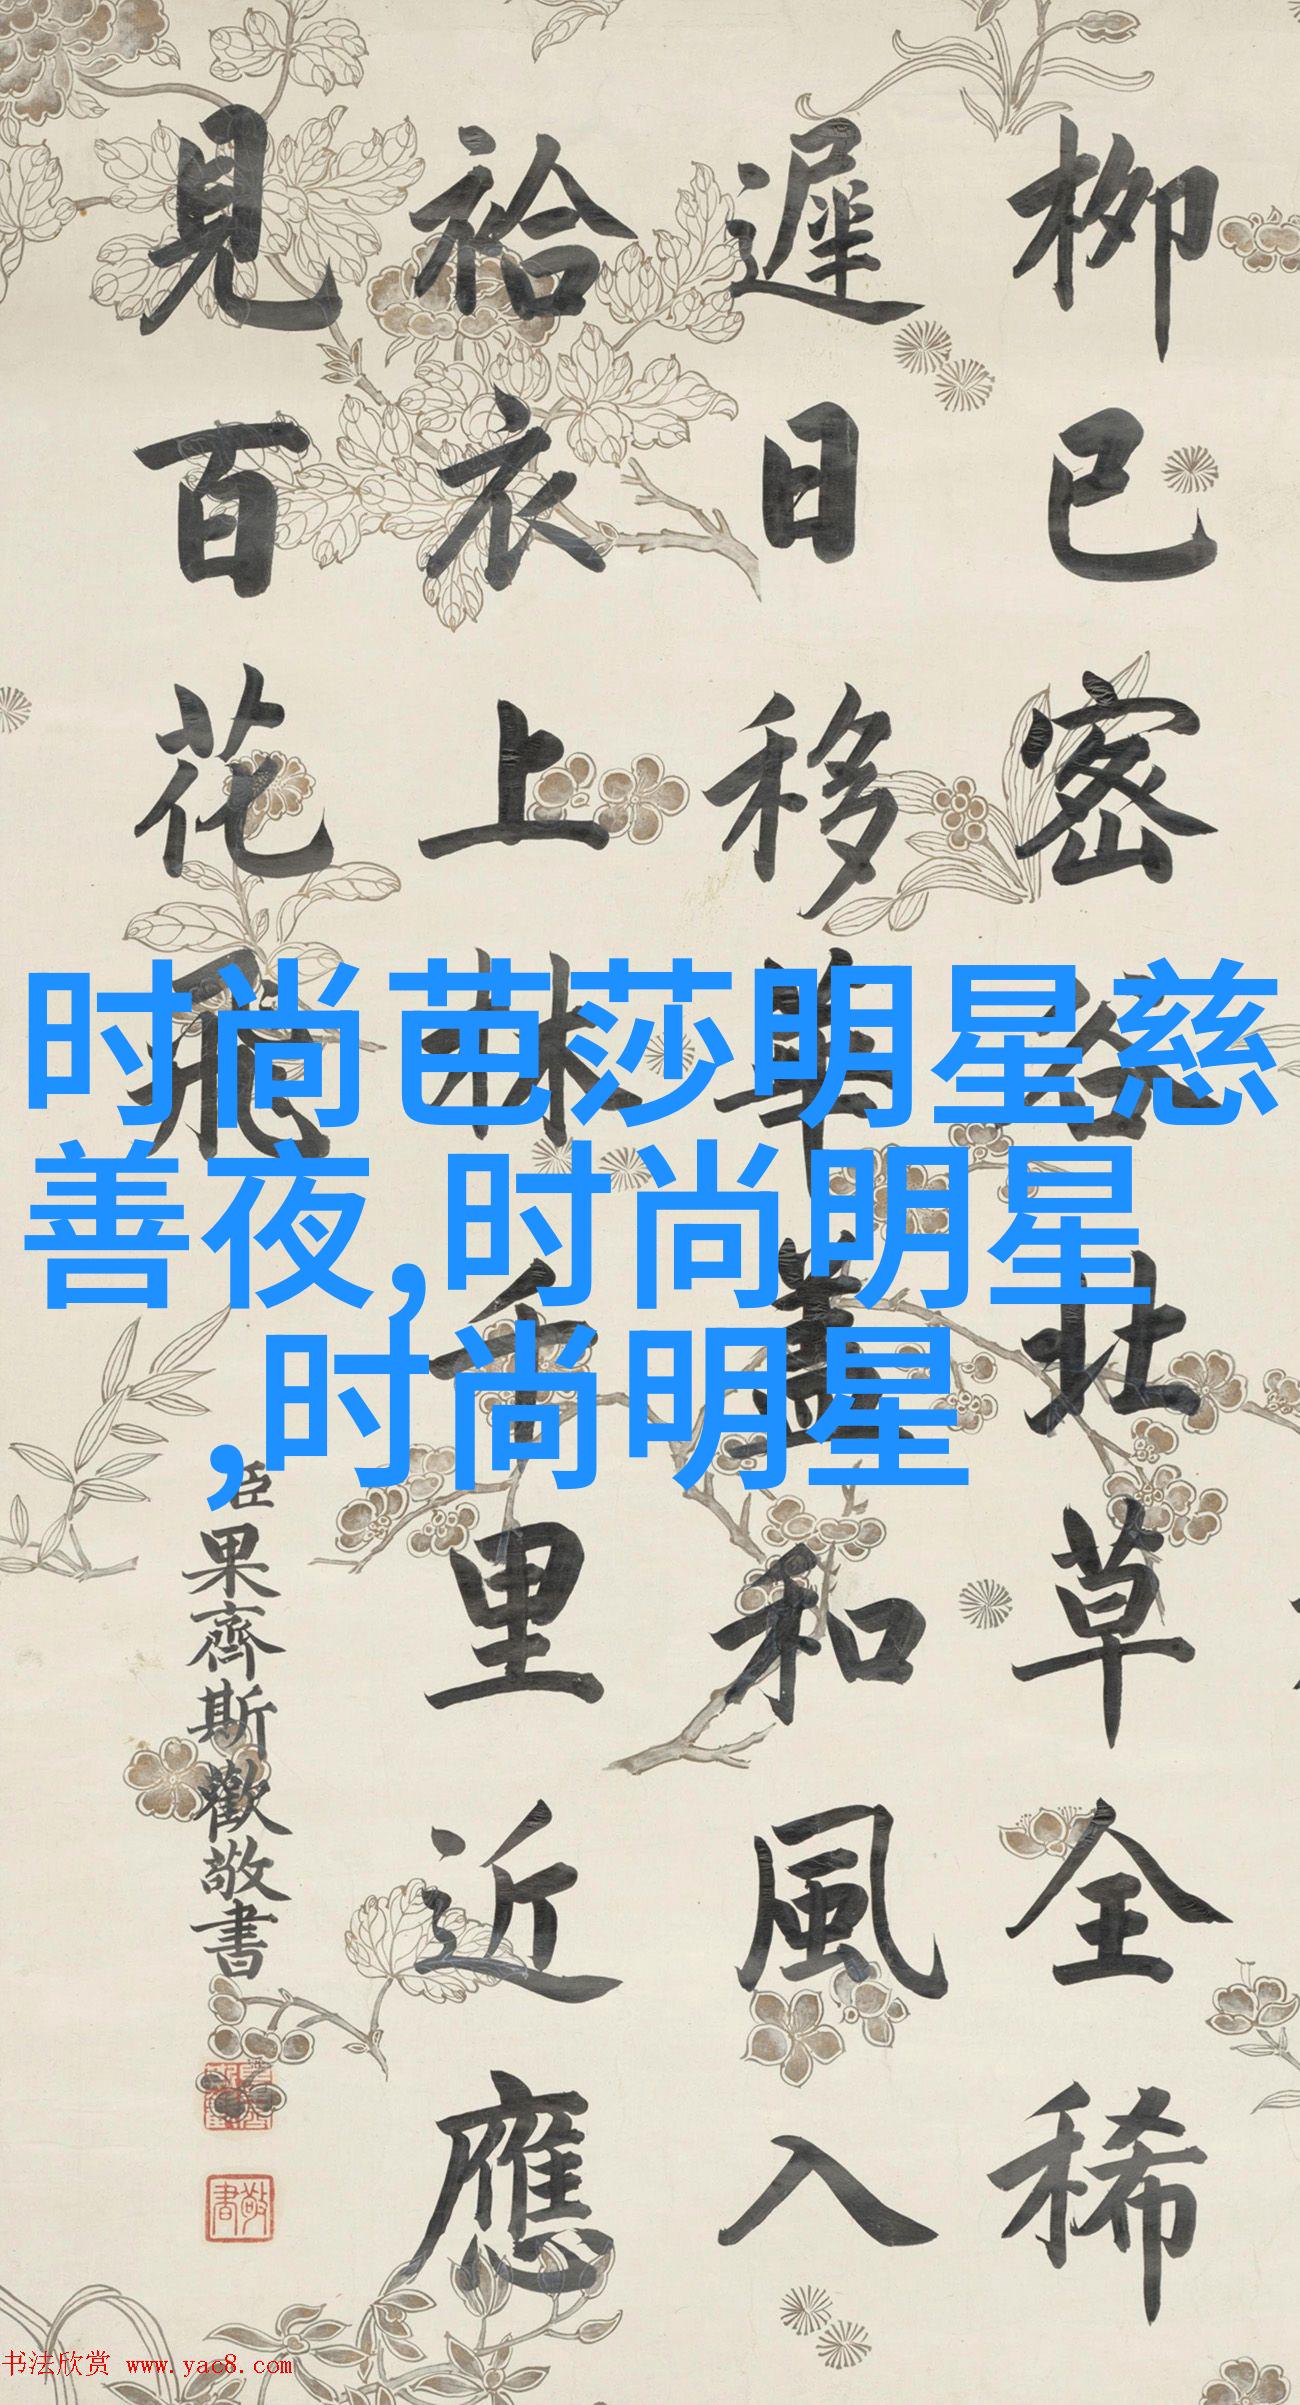 柳已密北草全稀
遲日移華蓋和風入
袷衣上林千里近應
見百花飛
臣果齊斯歡敬書
敬書
时尚芭莎明星慈
善夜,时尚明星
,时尚明星
书法欣赏 www.yac8.com